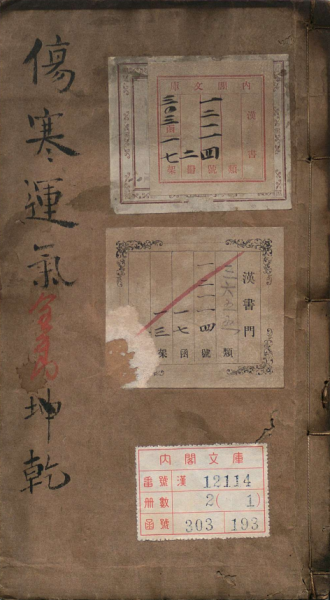 傷寒運氣
坤乾
內閣文庫
漢書
一二一一四號
二
三〇三
一七架
漢書門
類
一二一一四號
一七函
一三架
內閣文庫
番號 漢 12114
册數 2(1)
函號 303 193